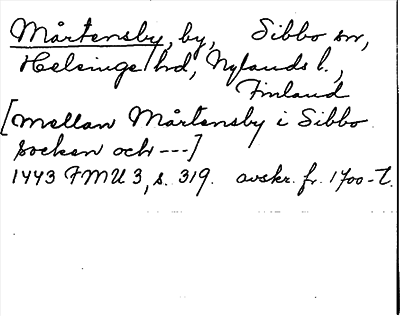 Mårtensby, by, Sibbo sn,
Helsinge hd, Nylands l.,
Finland
[mellan Mårtensby i Sibbo
socken och ---]
1443 FMU 3, s. 319. avskr. fr. 1700-t.